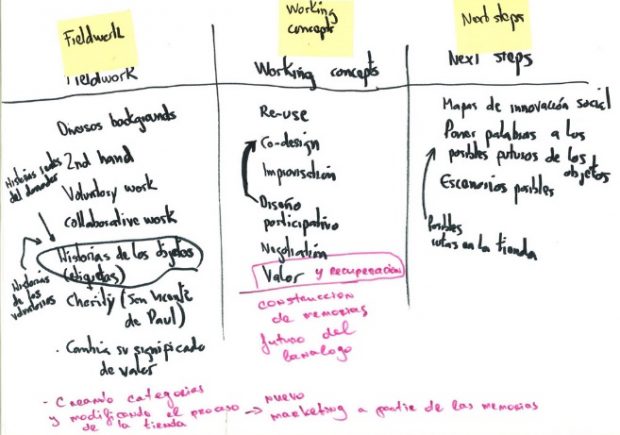 Fieldwork
Fieldwork
Diversos backgrounds
2nd hand
Voluntary work
collaborative work
Historias
del donador
Historias de los objetos
(etiquetas)
Historias
de los
voluntarios
Charity (San Vicente
de Paul)
· Cambia su significado
de valor
- Creando categorias
y modificando el proceso
de la tienda
→ nuevo
marketing a partir de las memorias
Working
concepts
Working concepts
Re-use
Co-design
Improvisación
Diseño
participativo
Negotiation
Valor y recuperación
construccion
de memorias
futuro del
Next steps
Next steps
Mapas de innovación social
Poner palabras a los
posibles futuros de los
objetos
Escenarios posibles
Posibles
rutas en la tienda